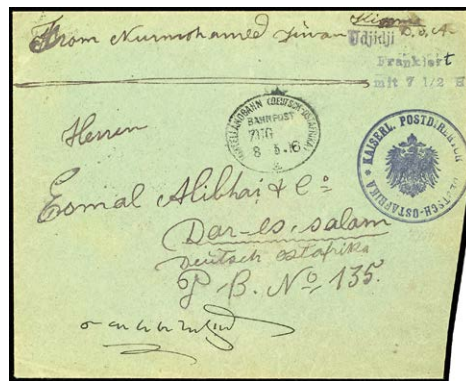 From Nurmohamed Jiwan
D.O.A.
Udjidji
Frankiert
mit 7 1/2 H
MITTELLANDBAHN (DEUTSCH-OSTAFRIKA)
BAHNPOST
ZUG
8 5.16
KAISERL. POSTDIREKTION
DEUTSCH-OSTAFRIKA
Herren
Esmal Alibhai & Co
Dar-es-salam
Deutsch Ostafrika
P.B. No 135.